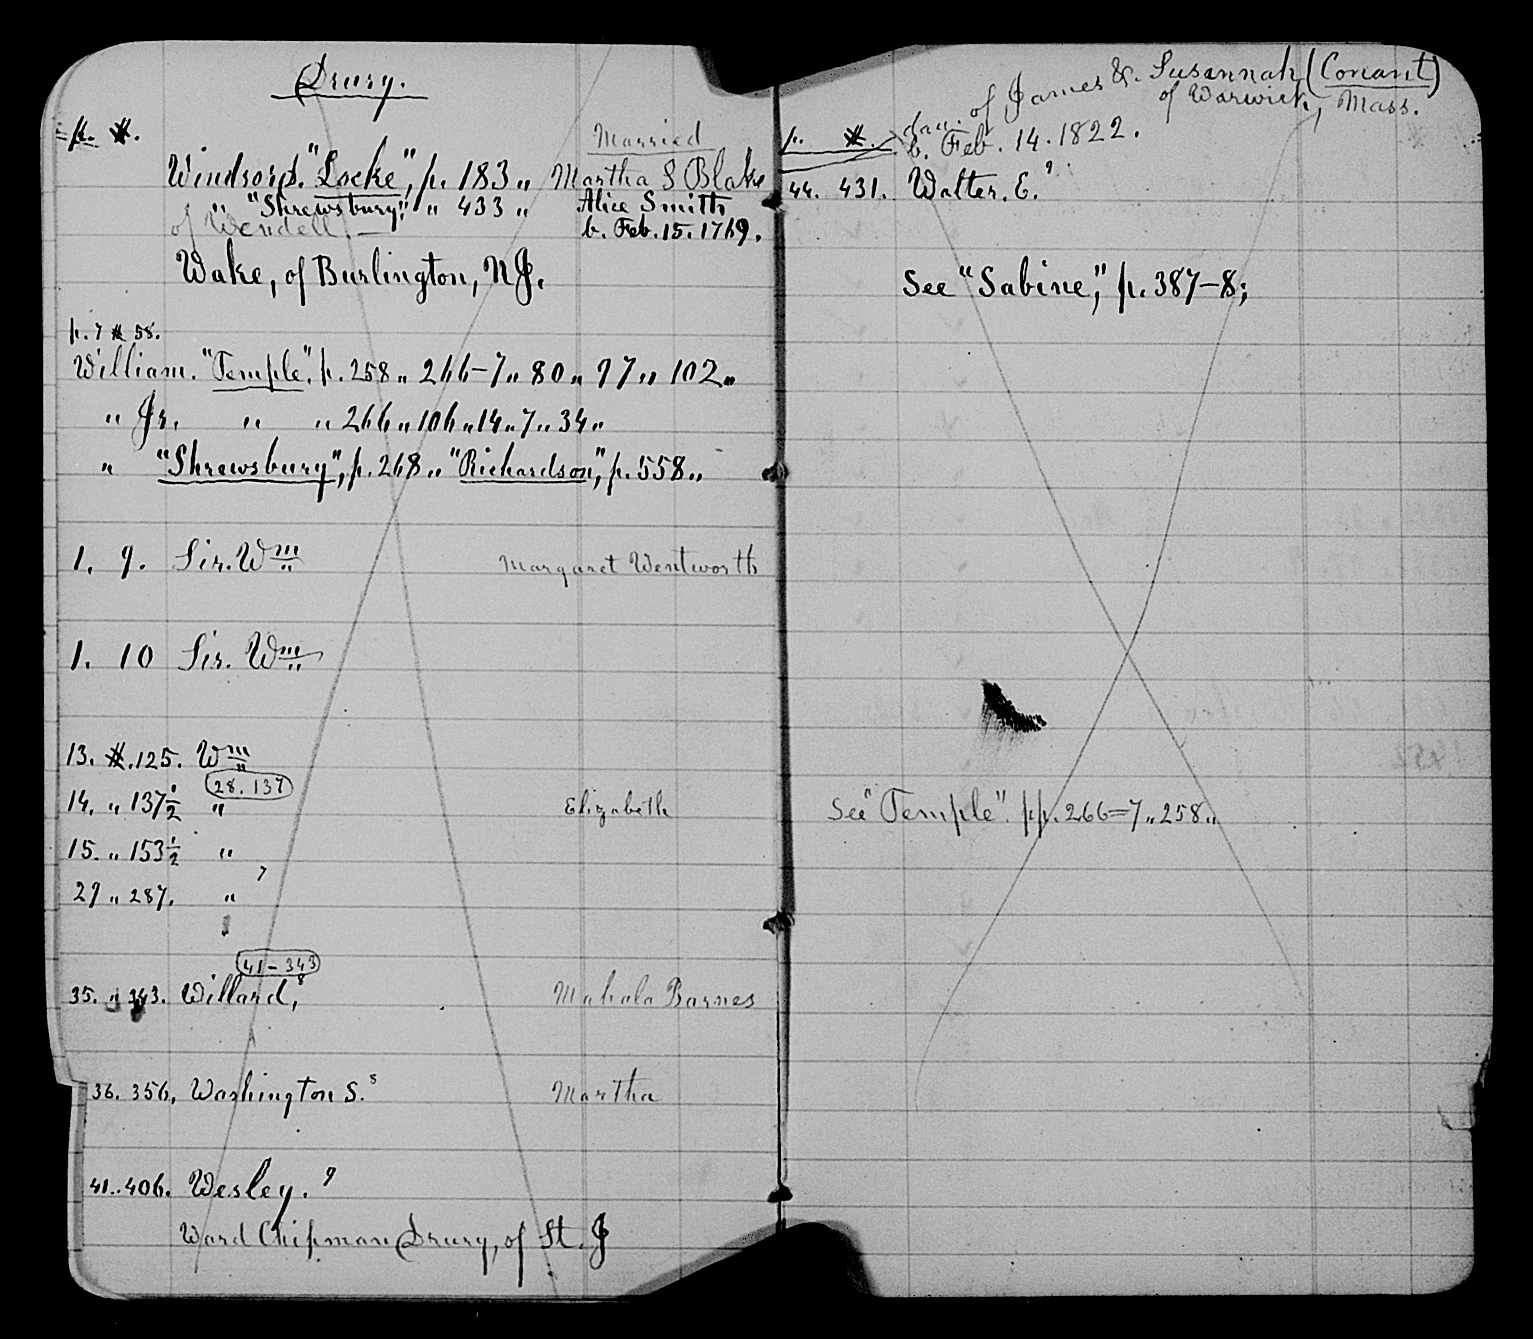 Drury.
p. #.
Married
Windsor, "Locke", p. 183 „ Martha S Blake
„ "Shrewsbury", „ 433 „ Alice Smith
of Wendell. — b. Feb. 15. 1769.
Wake, of Burlington, N J.
p. 7 # 58.
William. "Temple". p. 258 „ 266-7 „ 80 „ 97 „ 102 „
„ Jr. „ „ 266 „ 106 „ 14 „ 7 „ 34 „
„ "Shrewsbury", p. 268 „ "Richardson", p. 558 „
1. 9. Sir. Wm Margaret Wentworth
1. 10 Sir. Wm
13. #. 125. Wm
28. 137
14. „ 137½ „ Elizabeth
15. „ 153½ „
29 „ 287. „ 7
41-343
35. „ 343. Willard,8 Mahala Barnes
36. 356, Washington S.8 Martha
41. 406. Wesley.9
Ward Chipman Drury, of St. J
dau. of James & Susannah (Conant)
of Warwick, Mass.
p. #. b. Feb. 14. 1822.
44. 431. Walter. E.9
See "Sabine", p. 387-8;
See "Temple". pp. 266=7 „ 258 „